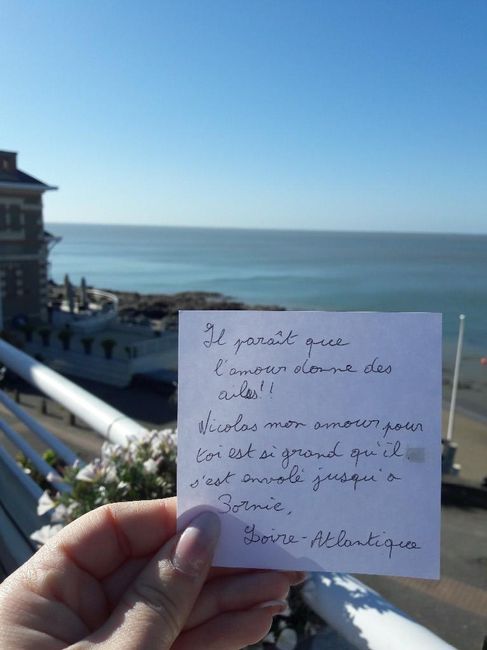 Il paraît que
l'amour donne des
ailes!!
Nicolas mon amour pour
toi est si grand qu'il
s'est envolé jusqu'a
Pornic,
Loire-Atlantique